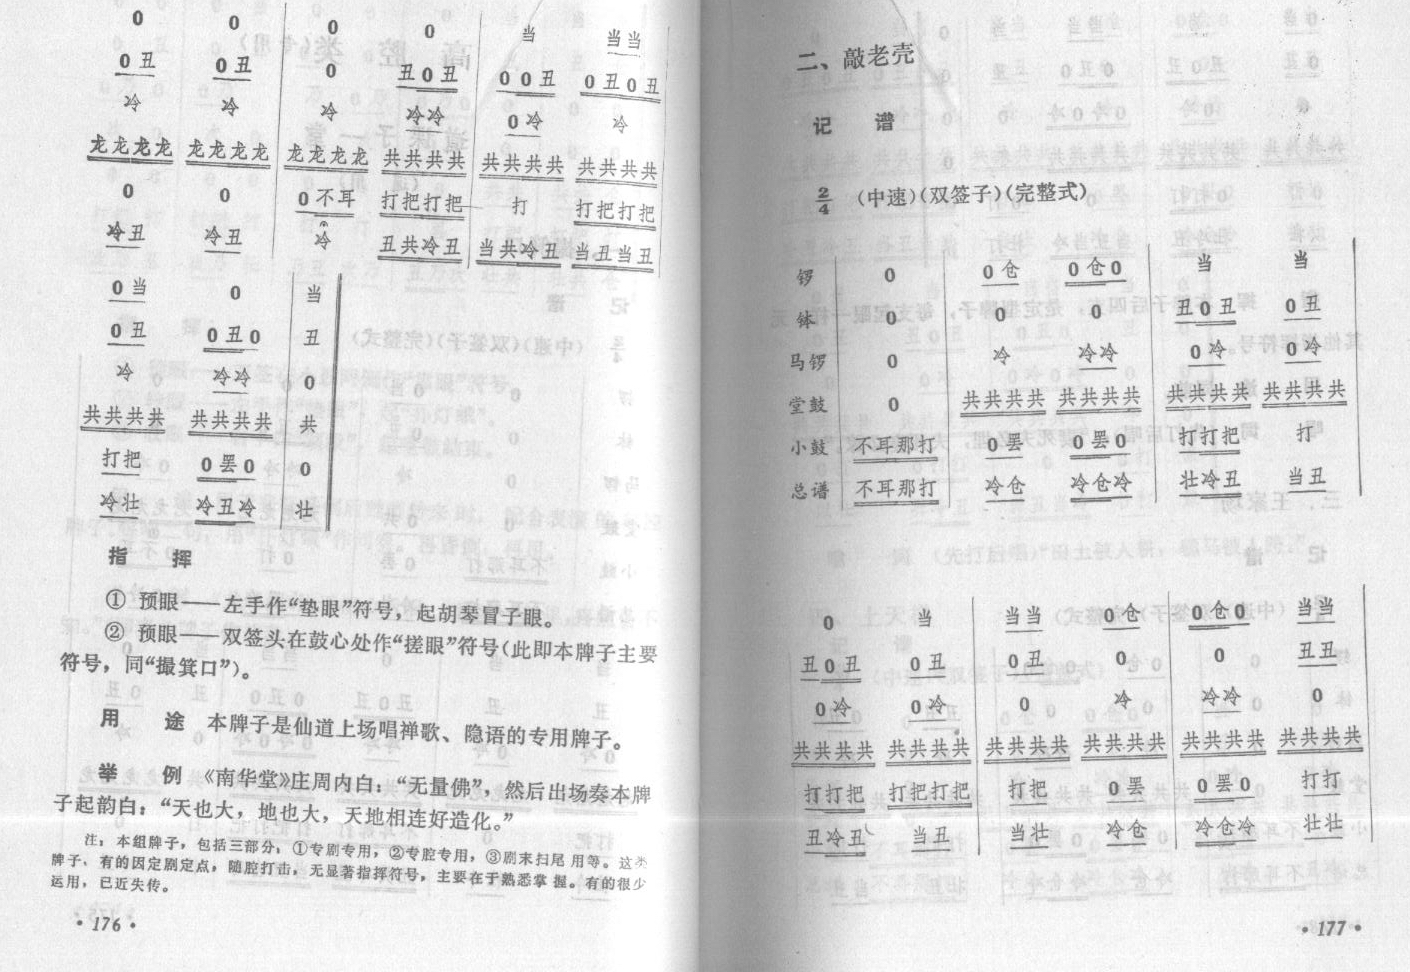 0 0 0 0 当 当当
0丑 0丑 0 丑0丑 00丑 0丑0丑
冷 冷 冷 冷冷 0冷 冷
龙龙龙龙 龙龙龙龙 龙龙龙龙 共共共共 共共共共 共共共共
0 0 0不耳 打把打把 打 打把打把
冷丑 冷丑 冷 丑共冷丑 当共冷丑 当丑当丑
0当 0 当
0丑 0丑0 丑
冷 冷冷 0
共共共共 共共共共 共
打把 0罢0 0
冷壮 冷丑冷 壮
指 挥
① 预眼——左手作“垫眼”符号，起胡琴冒子眼。
② 预眼——双签头在鼓心处作“搓眼”符号(此即本牌子主要
符号，同“撮箕口”)。
用 途 本牌子是仙道上场唱禅歌、隐语的专用牌子。
举 例 《南华堂》庄周内白：“无量佛”，然后出场奏本牌
子起韵白：“天也大，地也大，天地相连好造化。”
注：本组牌子，包括三部分，①专剧专用，②专腔专用，③剧末扫尾用等。这类
牌子，有的因定剧定点，随腔打击，无显著指挥符号，主要在于熟悉掌握。有的很少
运用，已近失传。
·176·
二、敲老壳
记 谱
2/4 (中速)(双签子)(完整式)
锣 0 0仓 0仓0 当 当
钵 0 0 0 丑0丑 0丑
马锣 0 冷 冷冷 0冷 0冷
堂鼓 0 共共共共 共共共共 共共共共 共共共共
小鼓 不耳那打 0罢 0罢0 打打把 打
总谱 不耳那打 冷仓 冷仓冷 壮冷丑 当丑
0 当 当当 0仓 0仓0 当当
丑0丑 0丑 0丑 0 0 丑丑
0冷 0冷 0 冷 冷冷 0
共共共共 共共共共 共共共共 共共共共 共共共共 共共共共
打打把 打把打把 打把 0罢 0罢0 打打
丑冷丑 当丑 当壮 冷仓 冷仓冷 壮壮
·177·